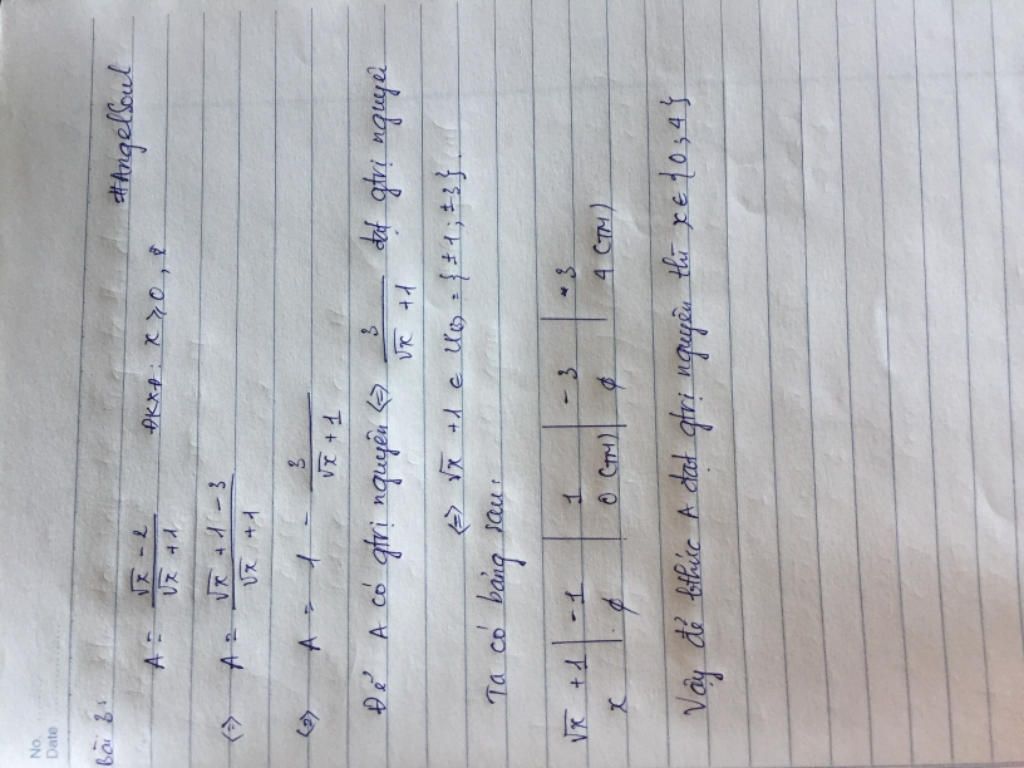 No.
Date
Bài 3:
#AngelSoul
A = (√x - 2)/(√x + 1) ĐKXĐ: x ≥ 0,
(=) A = (√x + 1 - 3)/(√x + 1)
(=) A = 1 - 3/(√x + 1)
Để A có gtrị nguyên (=) 3/(√x + 1) đạt gtrị nguyên
(=) √x + 1 ∈ Ư(3) = {±1; ±3}.
Ta có bảng sau:
√x + 1 | -1 | 1 | -3 | 3
x | ∅ | 0 (TM) | ∅ | 4 (TM)
Vậy để bthức A đạt gtrị nguyên thì x ∈ {0; 4}